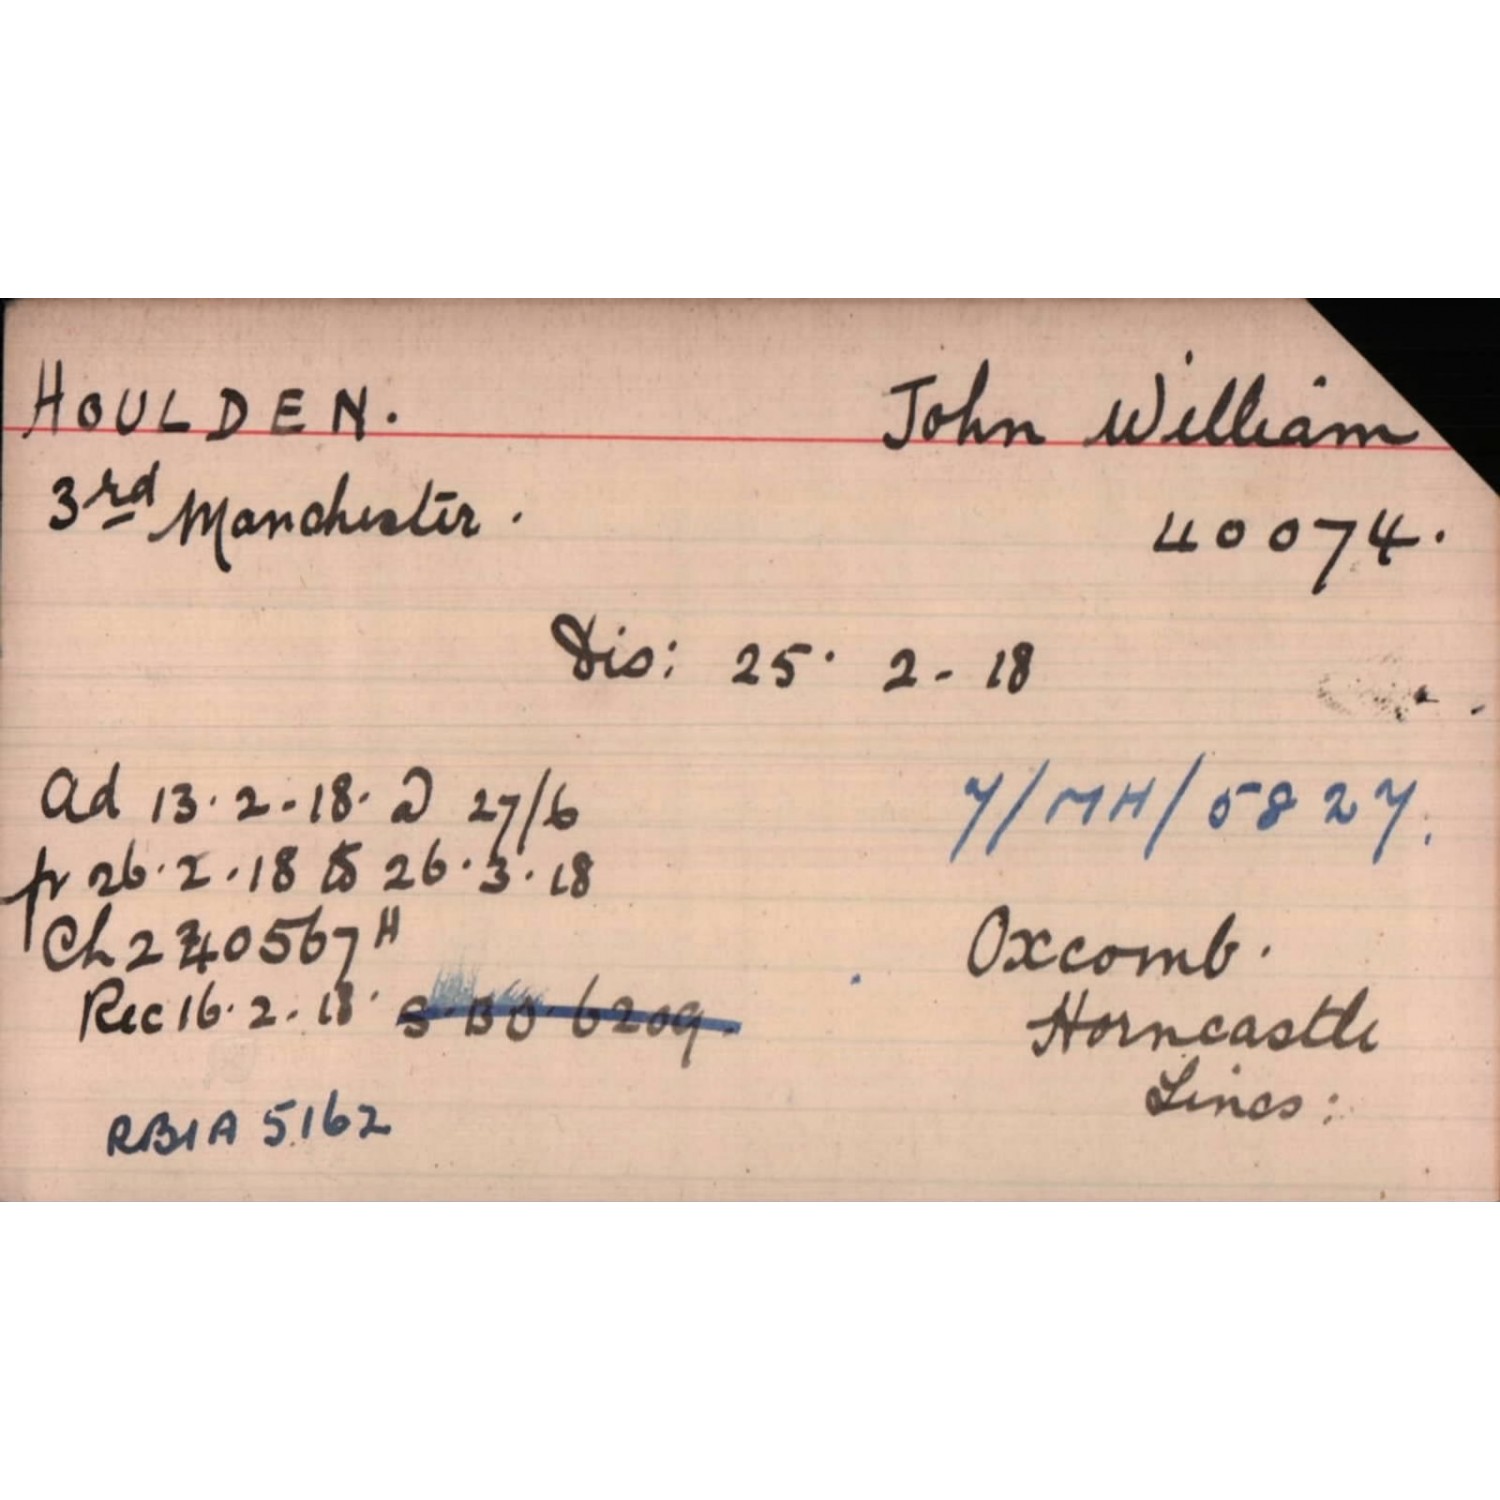 HOULDEN. John William
3rd Manchester. 40074.
Dis: 25. 2-18
Ad 13.2-18. @ 27/6 7/MH/5827.
fr 26.2.18 to 26.3.18
Ch 2 40567 H Oxcomb.
Rec 16.2.18. S.BO.6209. Horncastle
Lincs:
RB1A 5162